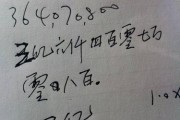 364,070,800
三亿六仟四百零七万
零八百。